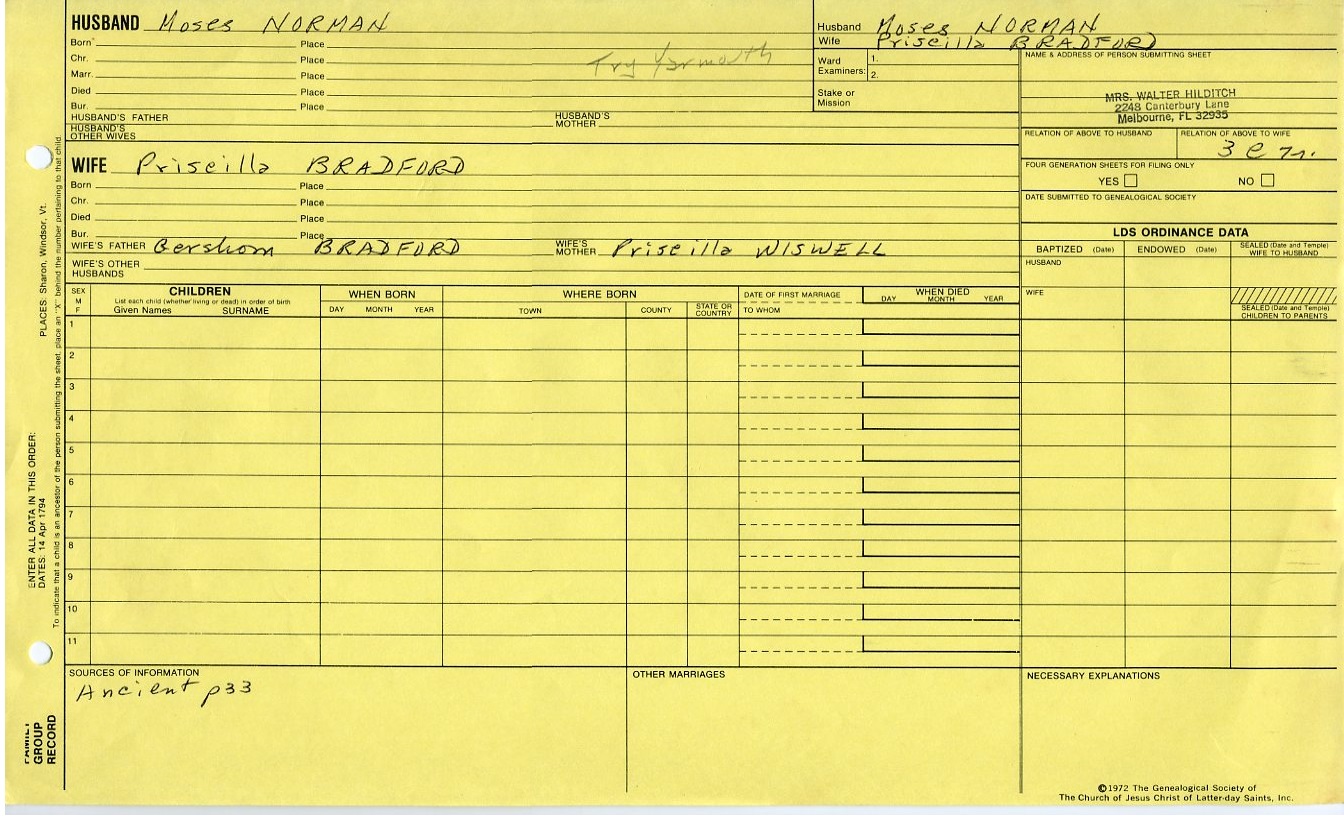 HUSBAND Moses NORMAN
Born Place
Chr. Place
Marr. Place
Died Place
Bur. Place
Try Yarmouth
HUSBAND'S FATHER HUSBAND'S MOTHER
HUSBAND'S OTHER WIVES
WIFE Priscilla BRADFORD
Born Place
Chr. Place
Died Place
Bur. Place
WIFE'S FATHER Gershom BRADFORD WIFE'S MOTHER Priscilla WISWELL
WIFE'S OTHER HUSBANDS
Husband Moses NORMAN
Wife Priscilla BRADFORD
Ward Examiners: 1.
2.
Stake or Mission
NAME & ADDRESS OF PERSON SUBMITTING SHEET
MRS. WALTER HILDITCH
2248 Canterbury Lane
Melbourne, FL 32935
RELATION OF ABOVE TO HUSBAND RELATION OF ABOVE TO WIFE
3 C
FOUR GENERATION SHEETS FOR FILING ONLY
YES NO
DATE SUBMITTED TO GENEALOGICAL SOCIETY
LDS ORDINANCE DATA
BAPTIZED (Date) ENDOWED (Date) SEALED (Date and Temple) WIFE TO HUSBAND
HUSBAND
WIFE
SEALED (Date and Temple) CHILDREN TO PARENTS
SEX M F
CHILDREN
List each child (whether living or dead) in order of birth
Given Names SURNAME
WHEN BORN
DAY MONTH YEAR
WHERE BORN
TOWN COUNTY STATE OR COUNTRY
DATE OF FIRST MARRIAGE
TO WHOM
WHEN DIED
DAY MONTH YEAR
1
2
3
4
5
6
7
8
9
10
11
SOURCES OF INFORMATION
Ancient p33
OTHER MARRIAGES
NECESSARY EXPLANATIONS
©1972 The Genealogical Society of
The Church of Jesus Christ of Latter-day Saints, Inc.
PLACES: Sharon, Windsor, Vt.
ENTER ALL DATA IN THIS ORDER:
DATES: 14 Apr 1794
To indicate that a child is an ancestor of the person submitting the sheet, place an "X" behind the number pertaining to that child.
FAMILY
GROUP
RECORD